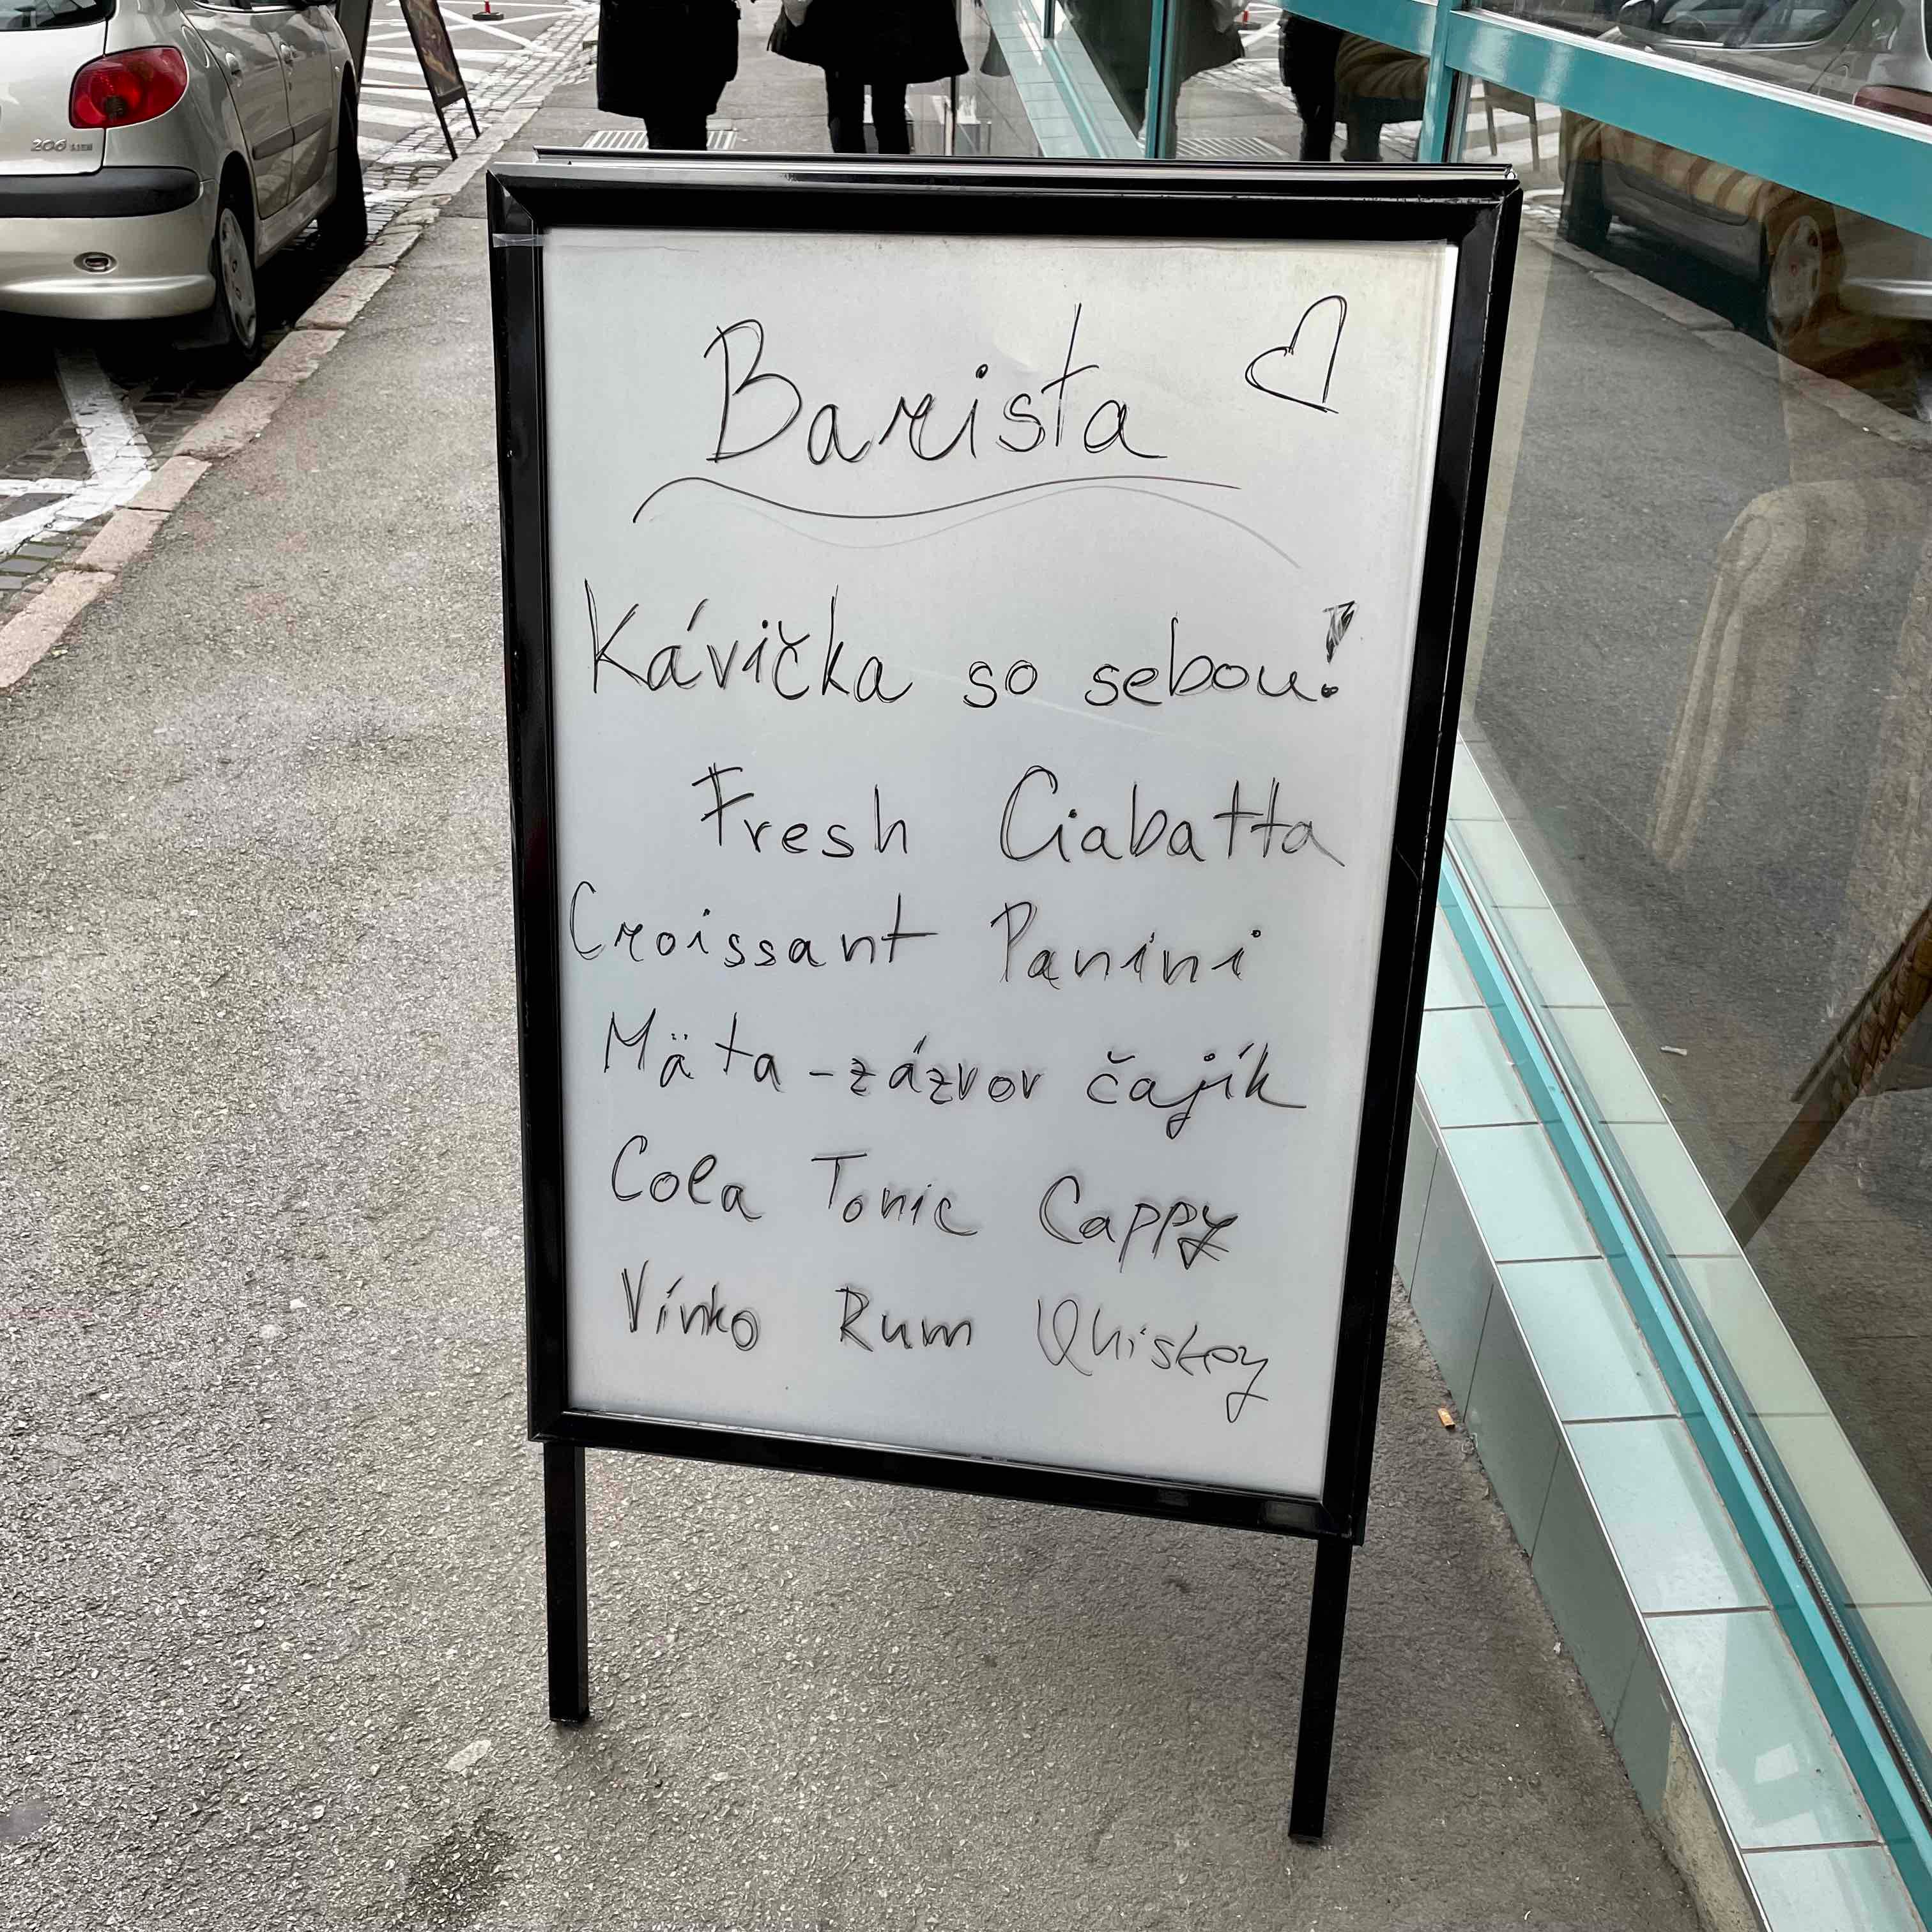 Barista
Kávička so sebou!
Fresh Ciabatta
Croissant Panini
Mäta-zázvor čajík
Cola Tonic Cappy
Vínko Rum Whiskey
206